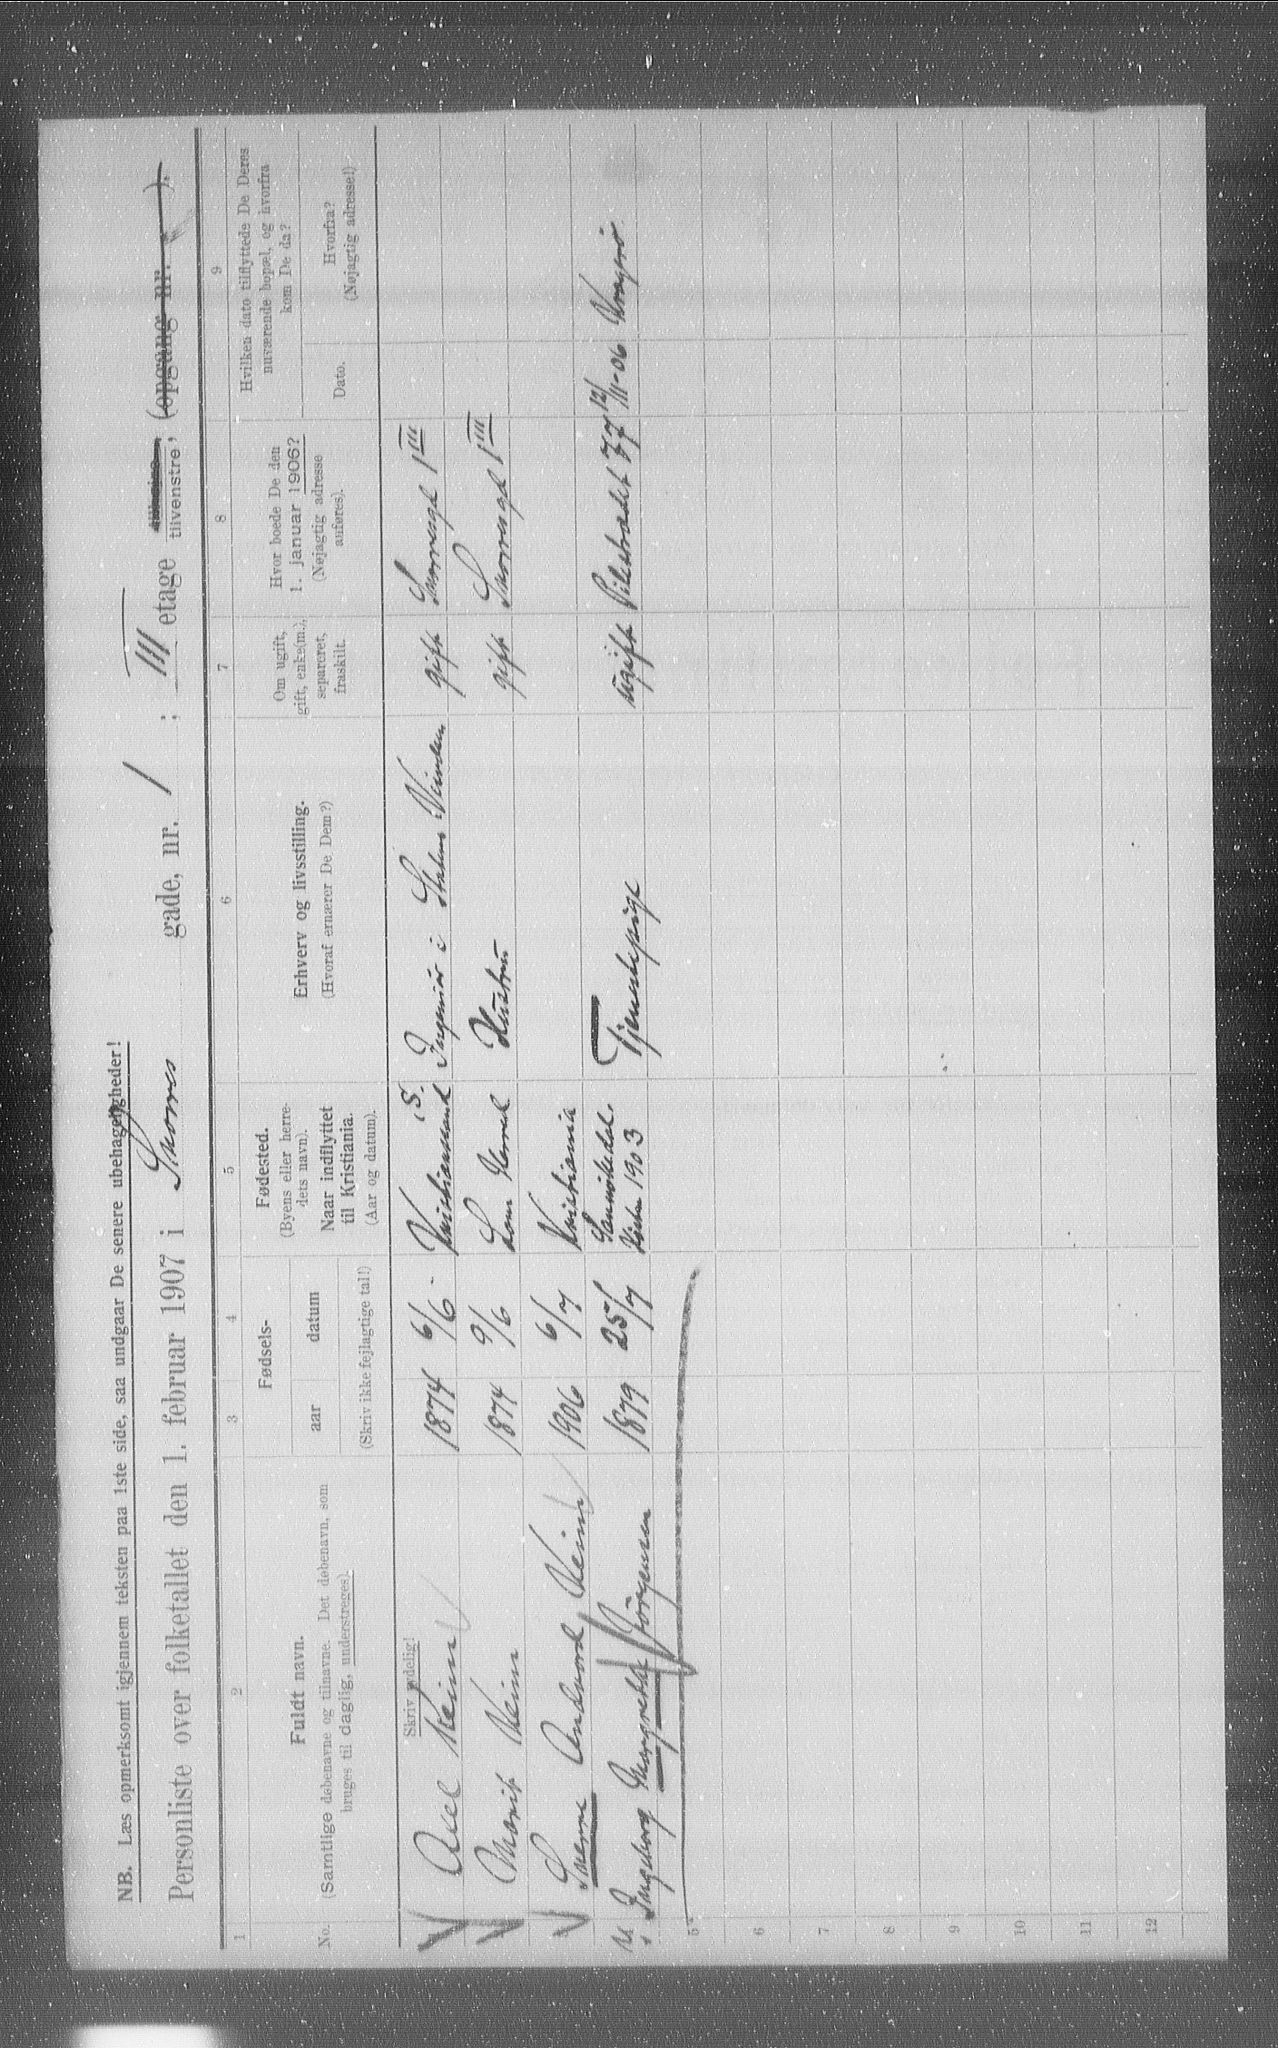 NB. Læs opmerksomt igjennem teksten paa 1ste side, saa undgaar De senere ubehageligheder!
Personliste over folketallet den 1. februar 1907 i Snorres gade, nr. 1 ; III etage tilvenstre, (opgang nr. ).
1 2 3 4 5 6 7 8 9
No.
Fuldt navn.
(Samtlige døbenavne og tilnavne. Det døbenavn, som
bruges til daglig, understreges).
Fødsels-
aar datum
(Skriv ikke fejlagtige tal!)
Fødested.
(Byens eller herre-
dets navn).
Naar indflyttet
til Kristiania.
(Aar og datum).
Erhverv og livsstilling.
(Hvoraf ernærer De Dem?)
Om ugift,
gift, enke(m.),
separeret,
fraskilt.
Hvor boede De den
1. januar 1906?
(Nøjagtig adresse
anføres).
Hvilken dato tilflyttede De Deres
nuværende bopæl, og hvorfra
kom De da?
Dato.
Hvorfra?
(Nøjagtig adresse!)
Skriv tydelig!
Axel Keim 1874 6/6 Kristianssund S. Ingeniør i Statens gift Snorresgd 1 III
Marit Keim 1874 9/6 Lom Herred Hustru gift Snorresgd 1 III
Sverre Keim 1906 6/7 Kristiania
Ingeborg Margrethe Jörgensen 1879 25/7 Sannökedal. 1903 Tjenestepige ugift Pilestrædet 77 12/11-06 Kragerö
5
6
7
8
9
10
11
12